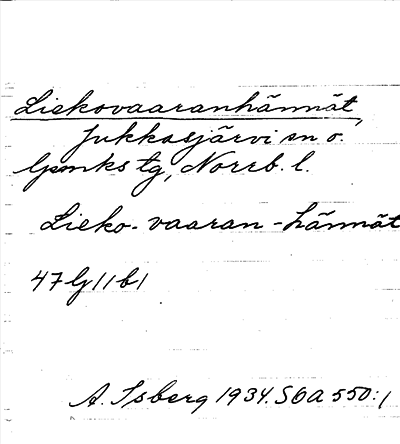 Liekovaaranhännät,
Jukkasjärvi sn o.
lpmks tg, Norrb. l.
Lieko-vaaran-hännät
47 lj 11 b 1
A. Isberg 1934. SOA 550:1